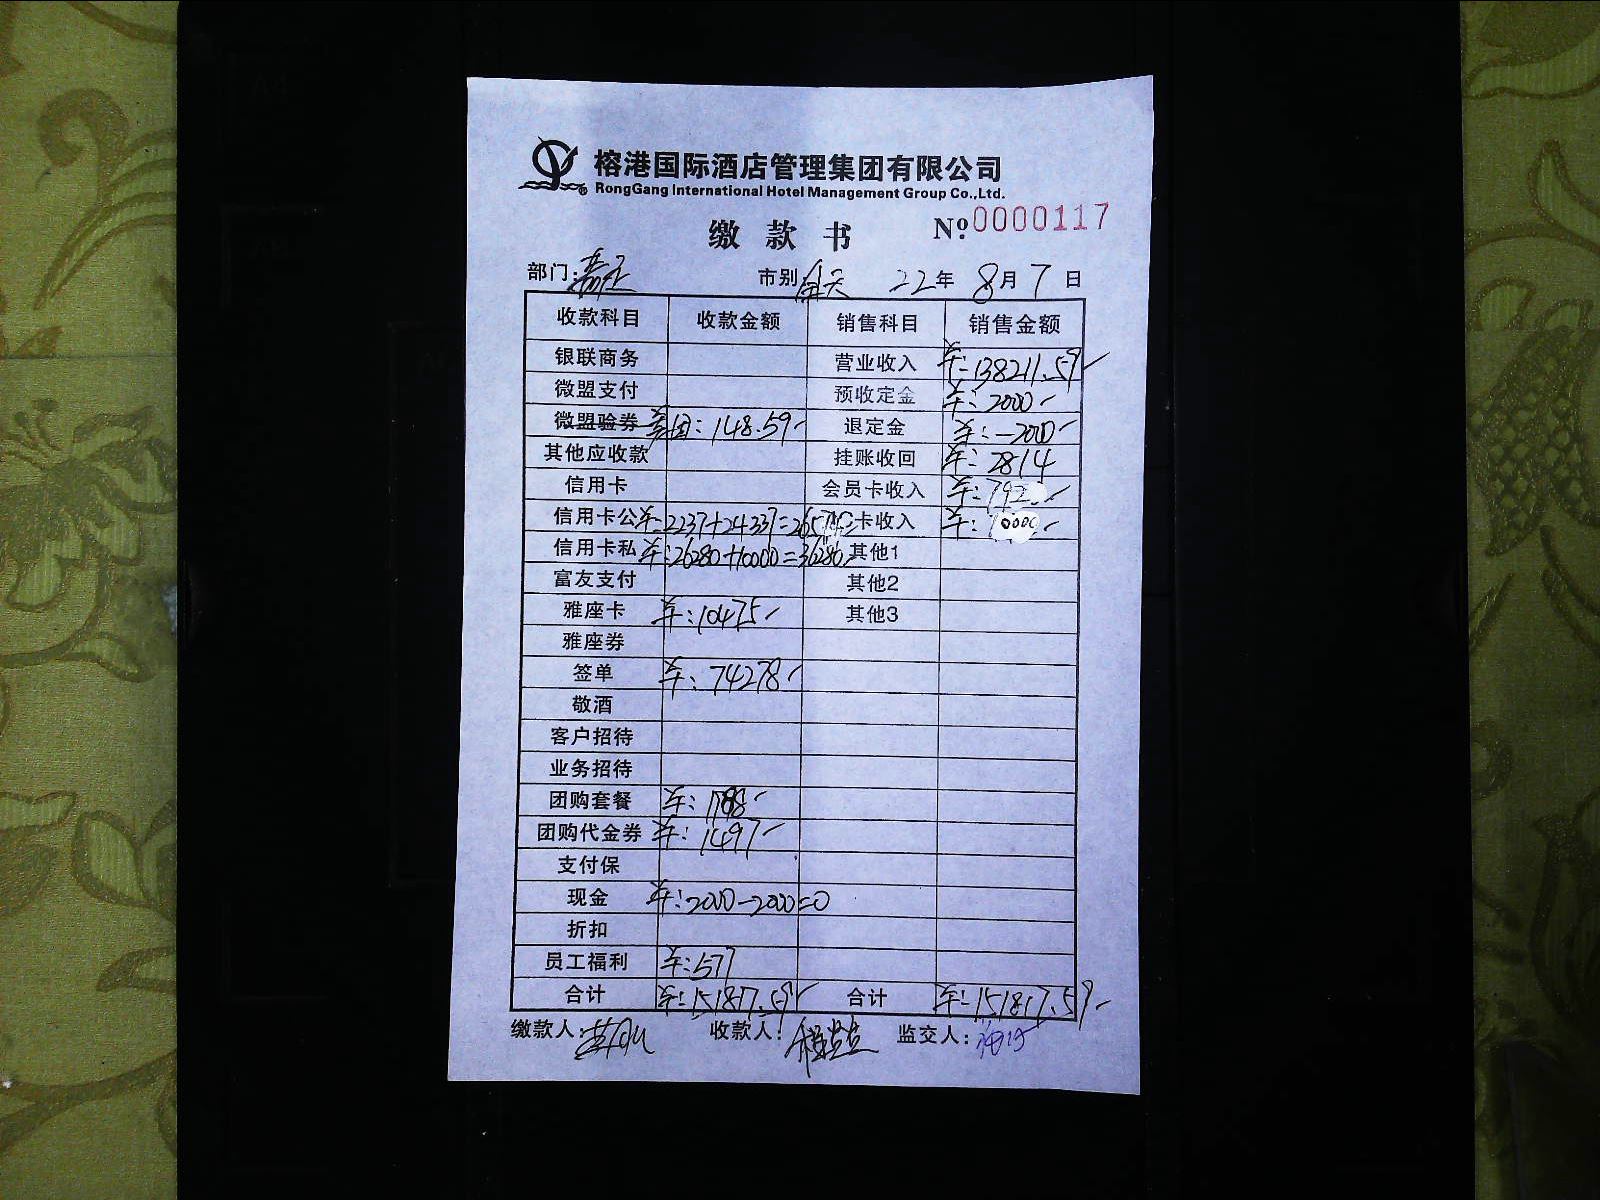 榕港国际酒店管理集团有限公司
RongGang International Hotel Management Group Co.,Ltd.
缴款书 Nº.0000117
部门: 市别 全天 22年 8月 7日
收款科目 收款金额 销售科目 销售金额
银联商务 营业收入 138211.59
微盟支付 预收定金 2000
微盟验券 美团:148.59 退定金 -2000
其他应收款 挂账收回 2814
信用卡 会员卡收入 792
信用卡公 2237+24337=26574 卡收入 10000
信用卡私 26280+10000=36280 其他1
富友支付 其他2
雅座卡 10475 其他3
雅座券
签单 74278
敬酒
客户招待
业务招待
团购套餐 1988
团购代金券 1497
支付保
现金 2000-2000=0
折扣
员工福利 577
合计 151817.59 合计 151817.59
缴款人: 收款人: 监交人: